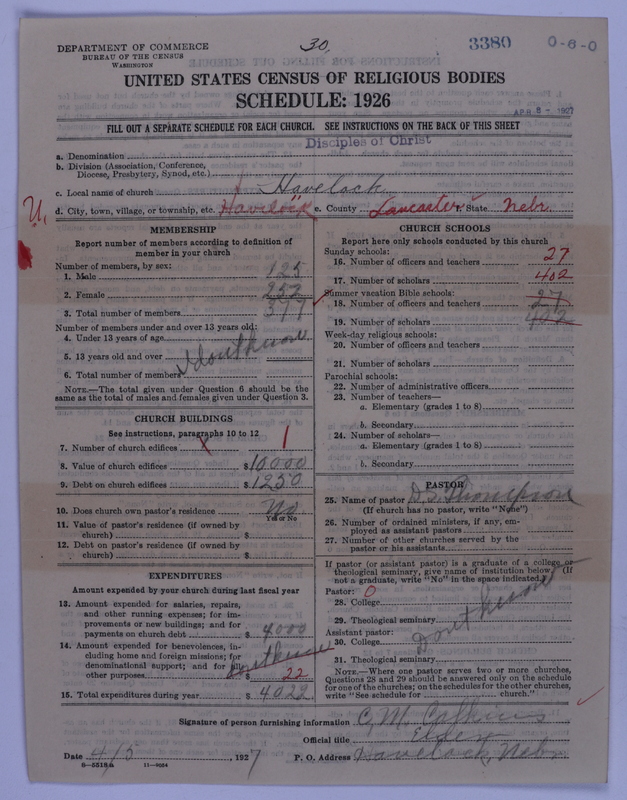 DEPARTMENT OF COMMERCE
BUREAU OF THE CENSUS
WASHINGTON
30,
3380
0-6-0
UNITED STATES CENSUS OF RELIGIOUS BODIES
SCHEDULE: 1926
APR 8 - 1927
FILL OUT A SEPARATE SCHEDULE FOR EACH CHURCH. SEE INSTRUCTIONS ON THE BACK OF THIS SHEET
Disciples of Christ
a. Denomination
b. Division (Association, Conference,
Diocese, Presbytery, Synod, etc.)
c. Local name of church Havelock
U. d. City, town, village, or township, etc. Havelock e. County Lancaster f. State Nebr.
MEMBERSHIP
Report number of members according to definition of
member in your church
Number of members, by sex:
1. Male 125
2. Female 252
3. Total number of members 377
Number of members under and over 13 years old:
4. Under 13 years of age
5. 13 years old and over
6. Total number of members
NOTE.—The total given under Question 6 should be the
same as the total of males and females given under Question 3.
CHURCH BUILDINGS
See instructions, paragraphs 10 to 12
7. Number of church edifices 1
8. Value of church edifices $10000
9. Debt on church edifices $1250
10. Does church own pastor's residence No
Yes or No
11. Value of pastor's residence (if owned by
church) $
12. Debt on pastor's residence (if owned by
church) $
EXPENDITURES
Amount expended by your church during last fiscal year
13. Amount expended for salaries, repairs,
and other running expenses; for im-
provements or new buildings; and for
payments on church debt $4000
14. Amount expended for benevolences, in-
cluding home and foreign missions; for
denominational support; and for all
other purposes $22
15. Total expenditures during year $4022
CHURCH SCHOOLS
Report here only schools conducted by this church
Sunday schools:
16. Number of officers and teachers 27
17. Number of scholars 402
Summer vacation Bible schools:
18. Number of officers and teachers 27
19. Number of scholars 402
Week-day religious schools:
20. Number of officers and teachers
21. Number of scholars
Parochial schools:
22. Number of administrative officers
23. Number of teachers—
a. Elementary (grades 1 to 8)
b. Secondary
24. Number of scholars—
a. Elementary (grades 1 to 8)
b. Secondary
PASTOR
25. Name of pastor Thompson
(If church has no pastor, write "None")
26. Number of ordained ministers, if any, em-
ployed as assistant pastors
27. Number of other churches served by the
pastor or his assistants
If pastor (or assistant pastor) is a graduate of a college or
theological seminary, give name of institution below. (If
not a graduate, write "No" in the space indicated.)
Pastor: 0
28. College
29. Theological seminary
Assistant pastor:
30. College
31. Theological seminary
NOTE.—Where one pastor serves two or more churches,
Questions 28 and 29 should be answered only on the schedule
for one of the churches; on the schedules for the other churches,
write "See schedule for church."
Signature of person furnishing information C. M. Calkins
Official title Elder
Date 4/5, 1927 P. O. Address Havelock, Nebr
11—9054